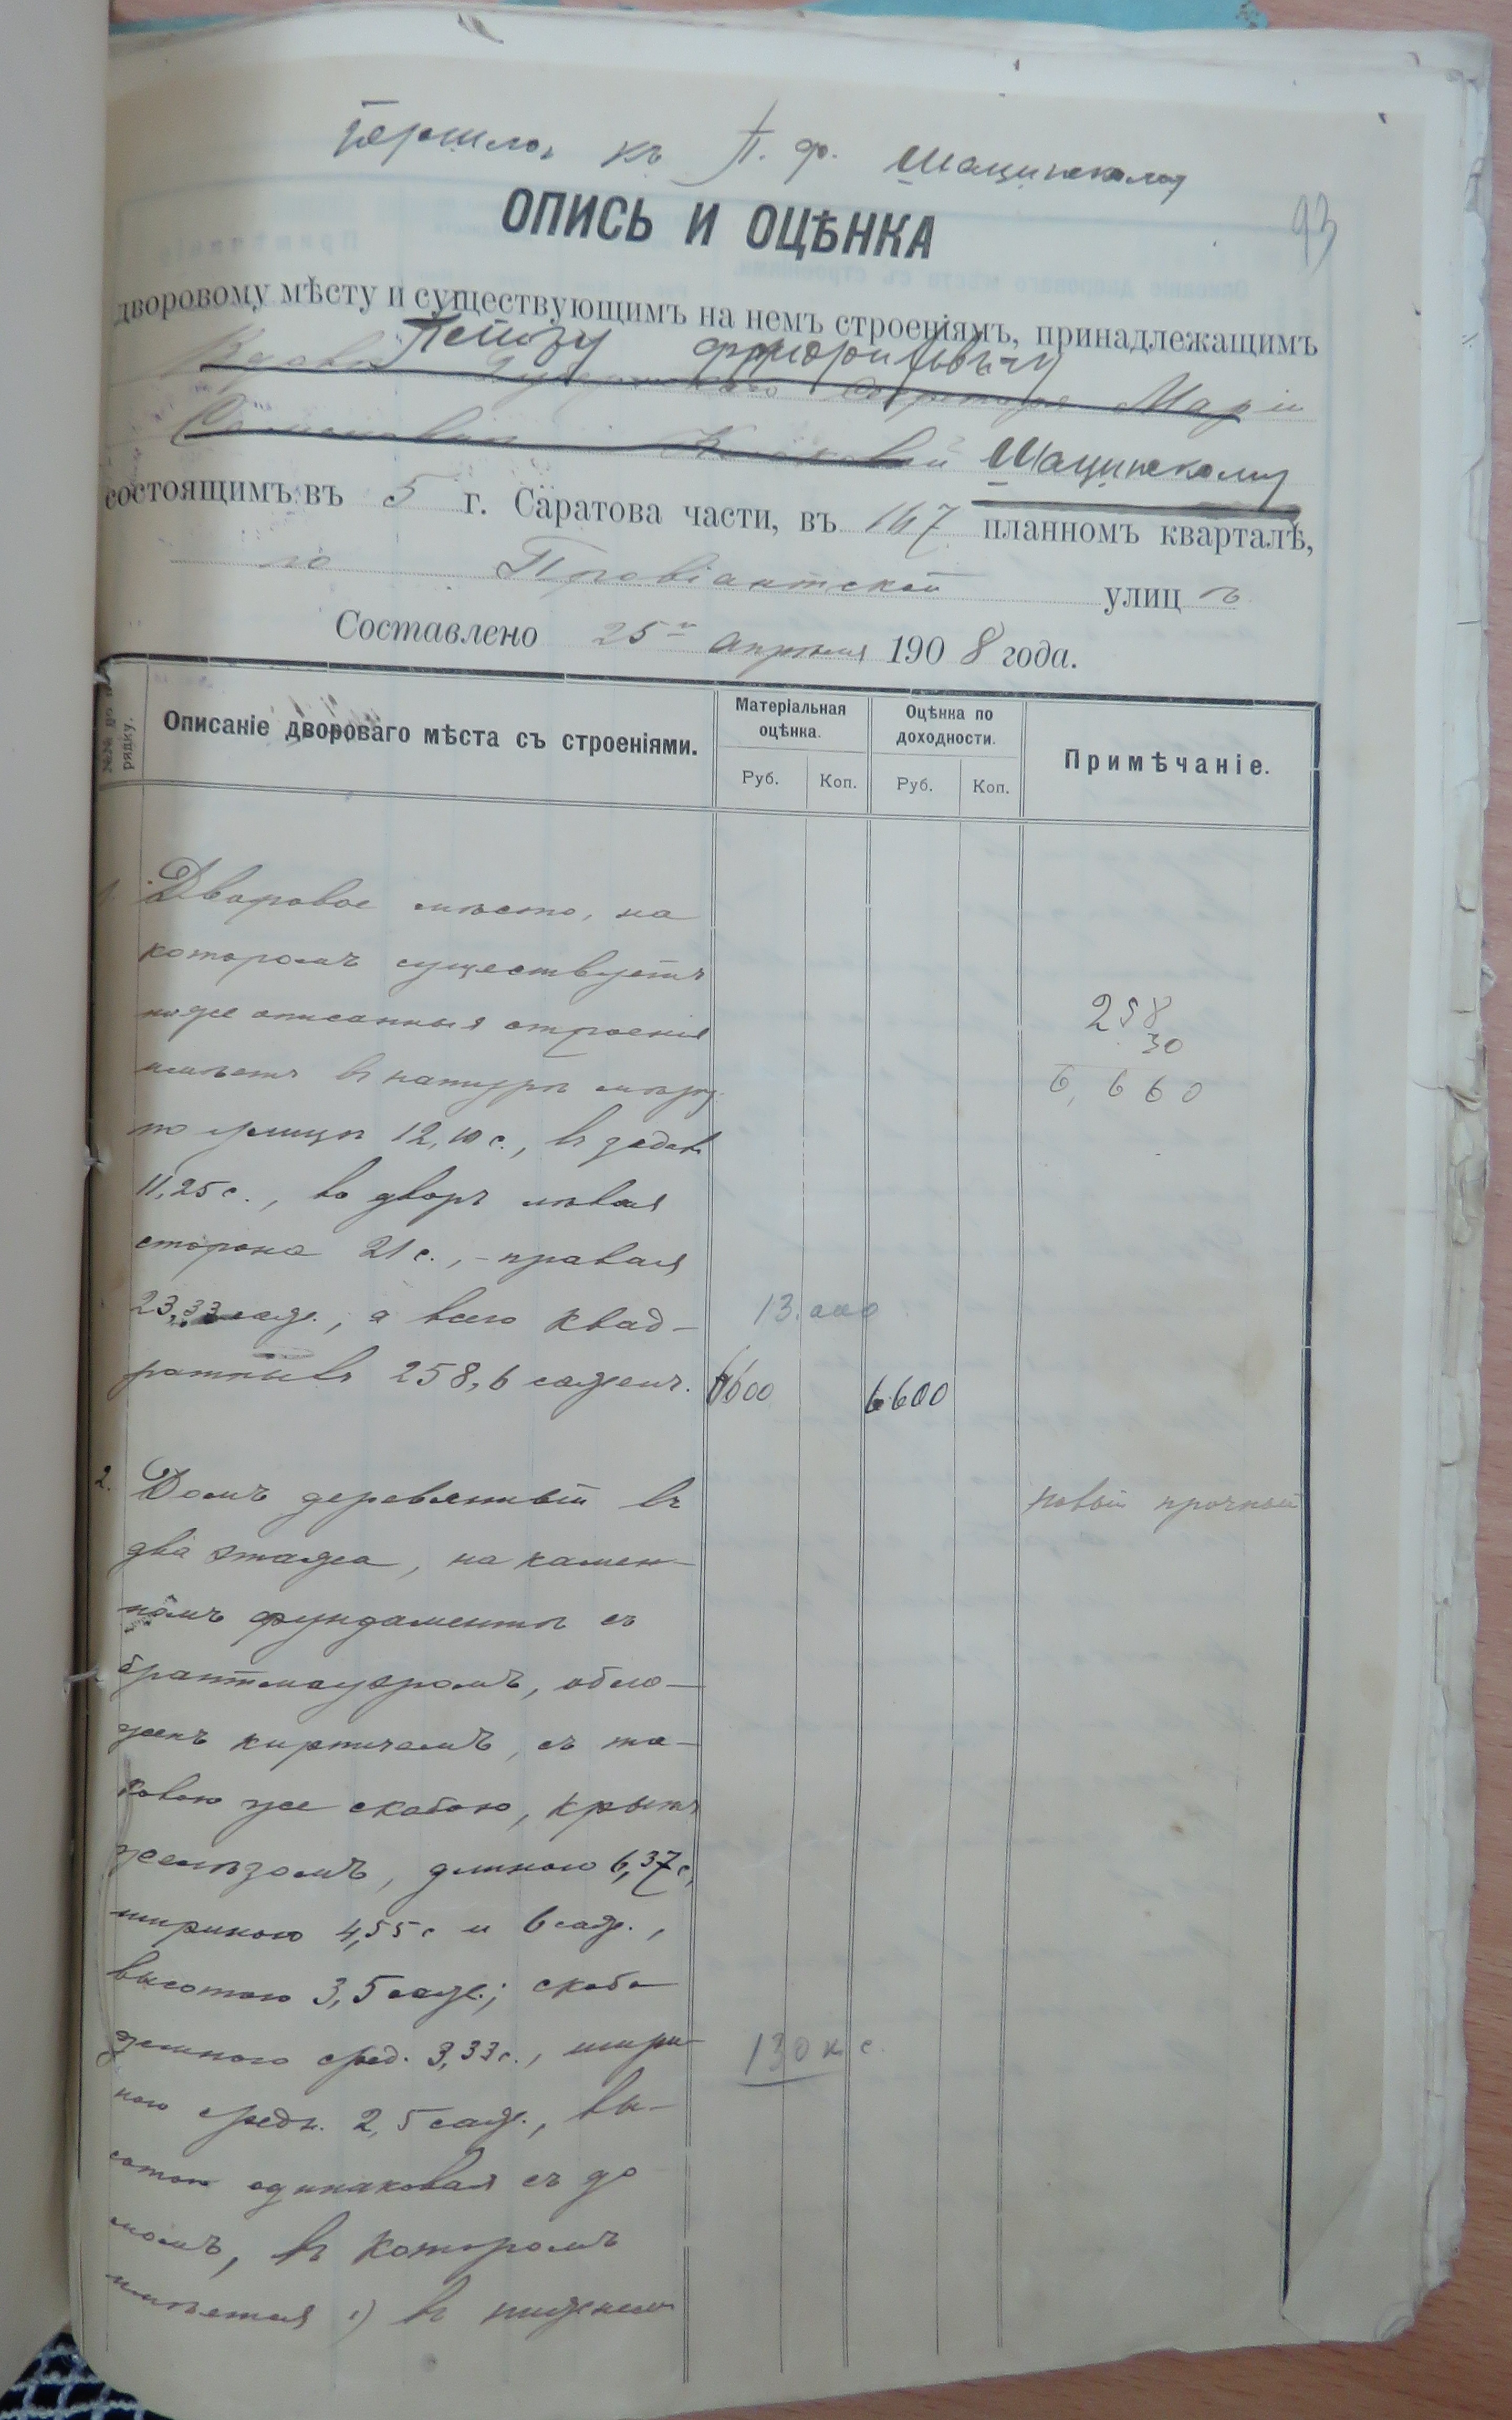 Перешло къ П. Ф. Шацинскому
93
ОПИСЬ И ОЦѢНКА
дворовому мѣсту и существующимъ на немъ строеніямъ, принадлежащимъ
Петру Фридриховичу
Вдовѣ Губернскаго Секретаря Маріи
Шацинскому
состоящимъ въ 5 г. Саратова части, въ 167 планномъ кварталѣ,
по Провіантской улицѣ
Составлено 25го апрѣля 1908 года.
№№ по порядку.
Описаніе двороваго мѣста съ строеніями.
Матеріальная оцѣнка.
Оцѣнка по доходности.
Примѣчаніе.
Руб. Коп. Руб. Коп.
1. Дворовое мѣсто, на
которомъ существуетъ
ниже описанныя строенія
имѣетъ въ натурѣ мѣры:
по улицѣ 12,10 с., въ задахъ
11,25 с., во дворъ лѣвая
сторона 21 с., - правая
23,33 саж., а всего квад-
ратныхъ 258,6 сажень. 6600 6600
13.000
258
30
6,660
2. Домъ деревянный въ новый прочный
два этажа, на камен-
номъ фундаментѣ съ
брантмауэромъ, обло-
женъ кирпичемъ, съ та-
ковою же скабою, крытъ
желѣзомъ, длиною 6,37 с.
шириною 4,55 с и 6 саж.,
высотою 3,5 саж.; скаба
длиною сред. 3,33 с., шири-
ною средн. 2,5 саж., вы-
130 к с.
сотою одинаковая съ до
момъ, въ которомъ
имѣется 1) въ нижнемъ